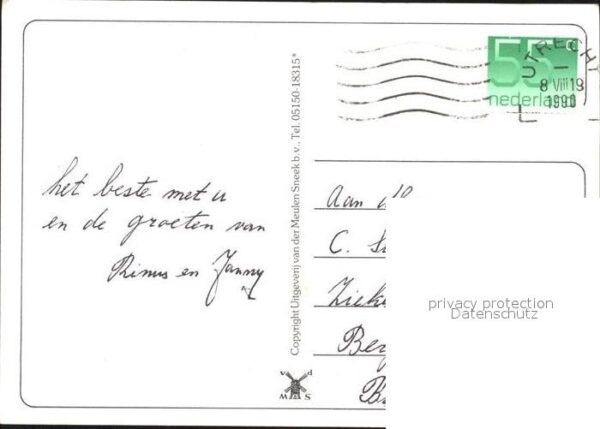 55c
nederland
UTRECHT
8 VIII 19
1990
het beste met u
en de groeten van
Rinus en Janny
Copyright Uitgeverij van der Meulen Sneek b.v., Tel. 05150-18315*
v d
S W M
Aan
C.
Zieke
Be
B
privacy protection
Datenschutz